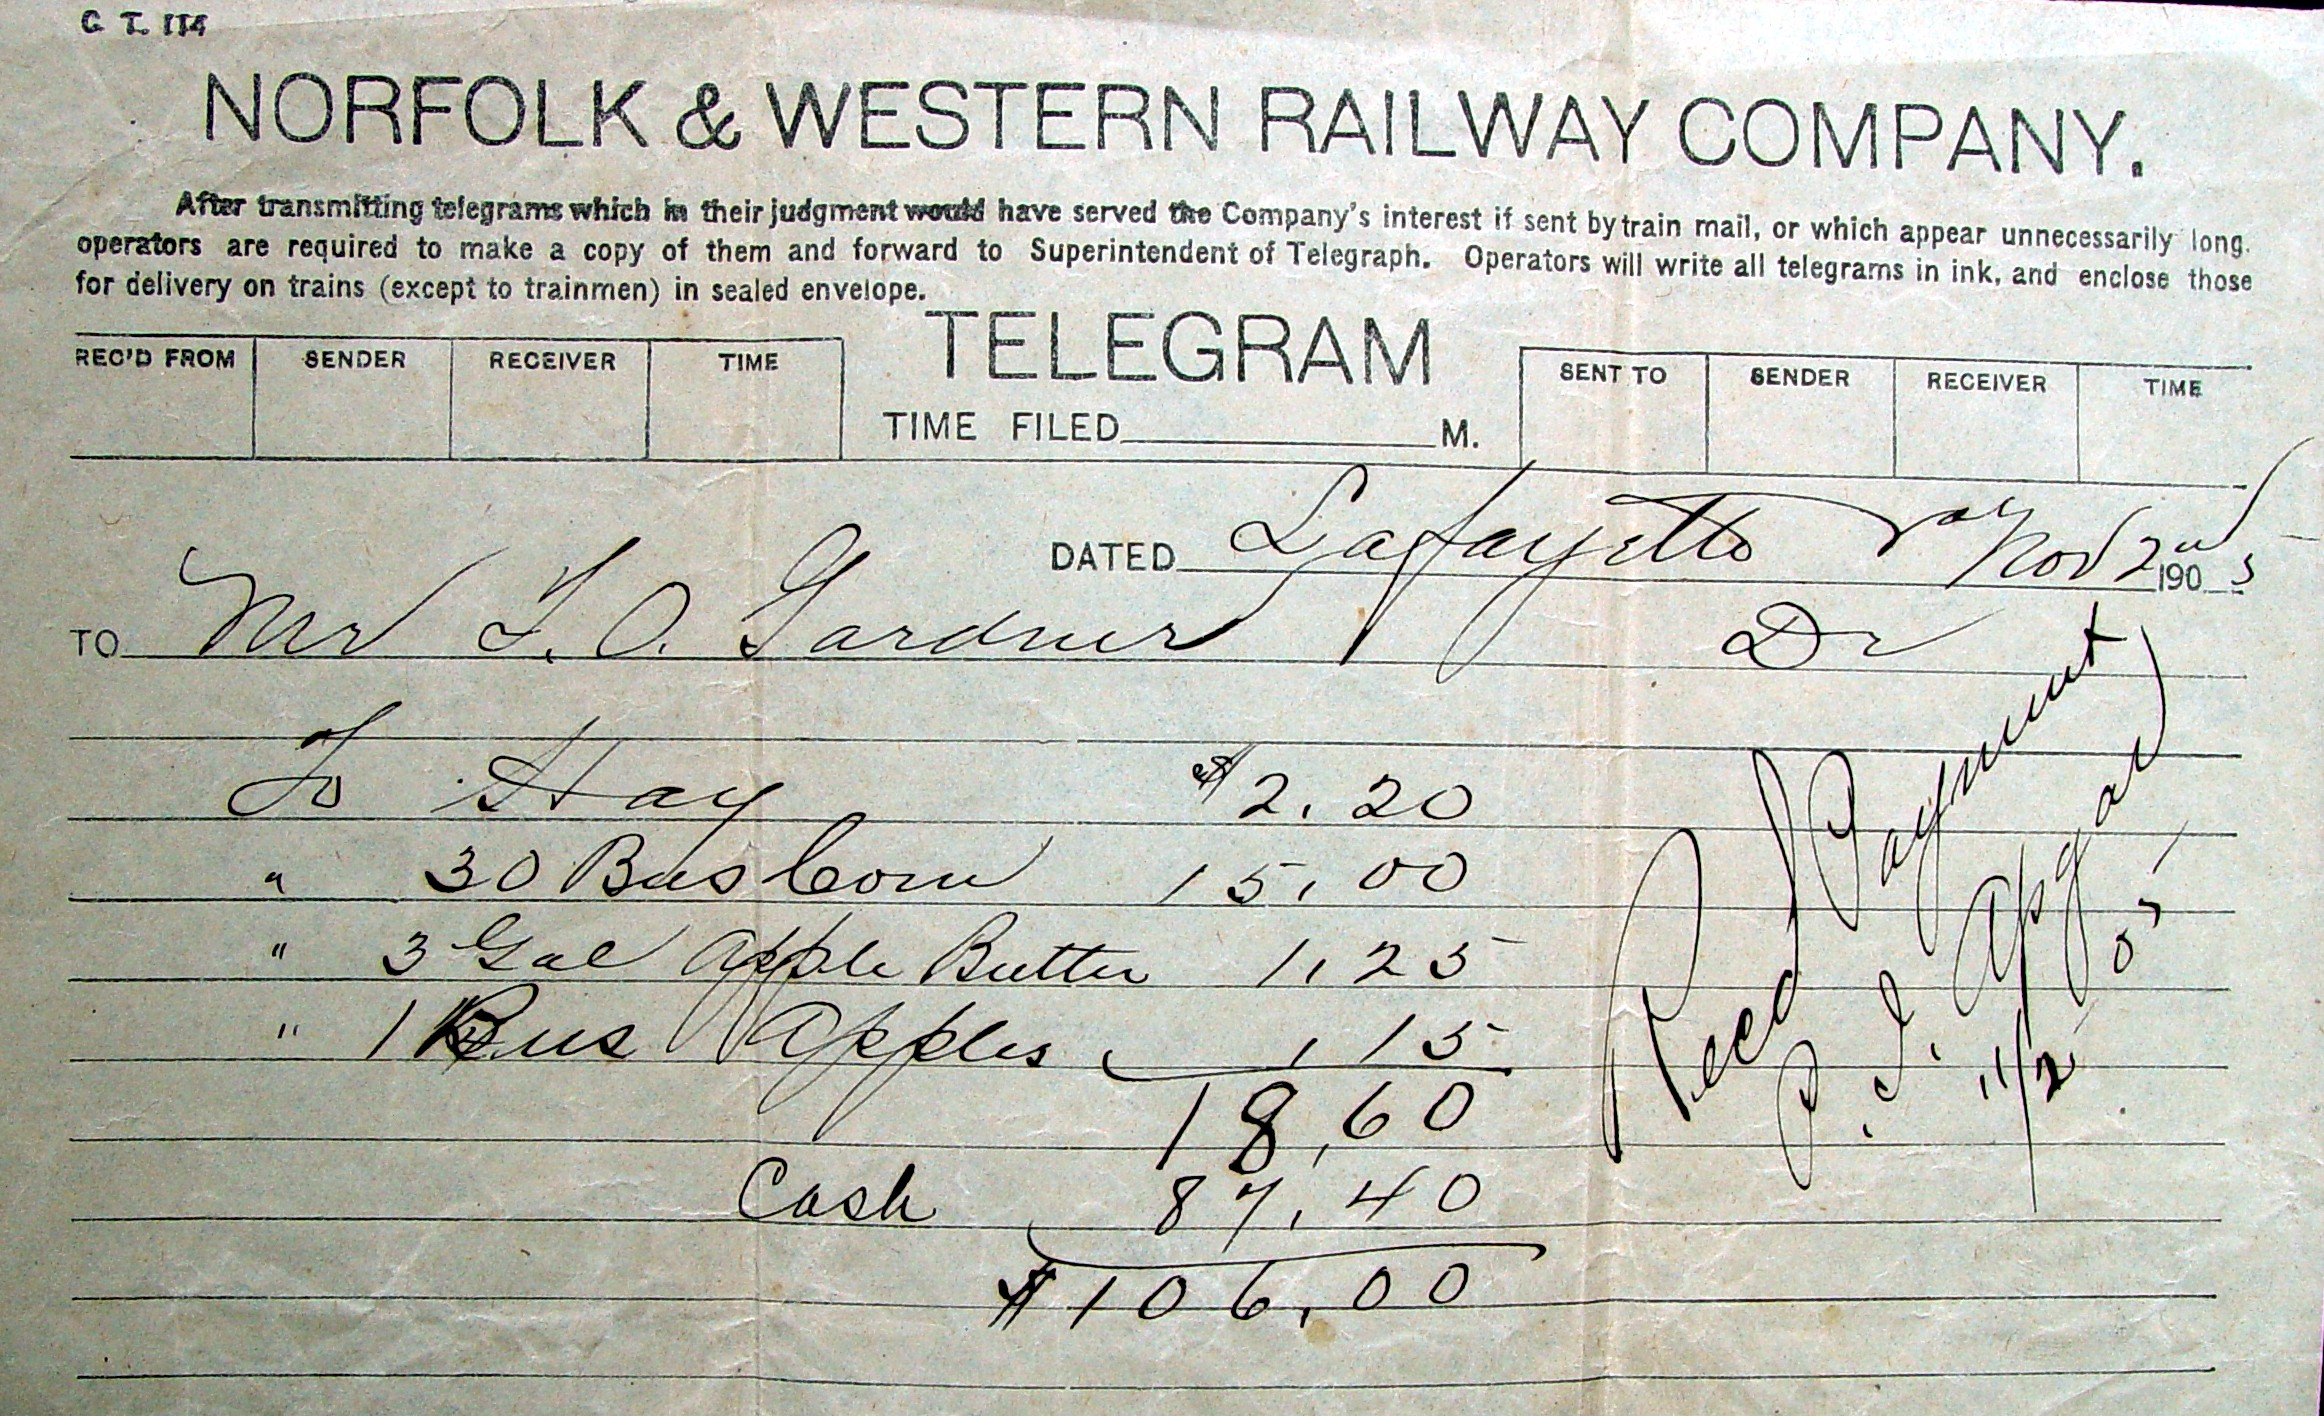 C. T. 114
NORFOLK & WESTERN RAILWAY COMPANY.
After transmitting telegrams which in their judgment would have served the Company's interest if sent by train mail, or which appear unnecessarily long.
operators are required to make a copy of them and forward to Superintendent of Telegraph. Operators will write all telegrams in ink, and enclose those
for delivery on trains (except to trainmen) in sealed envelope.
TELEGRAM
REC'D FROM SENDER RECEIVER TIME
TIME FILED M.
SENT TO SENDER RECEIVER TIME
DATED Lafayette Va Nov 2nd 1905
TO Mr T. O. Gardner Dr
To Hay $2.20
" 30 Bus Corn 15.00
" 3 Gal Apple Butter 1.25
" 1 Bus Apples .15
18.60
Cash 87.40
$106.00
Recd Payment
P. I. Apgar
11/2 05